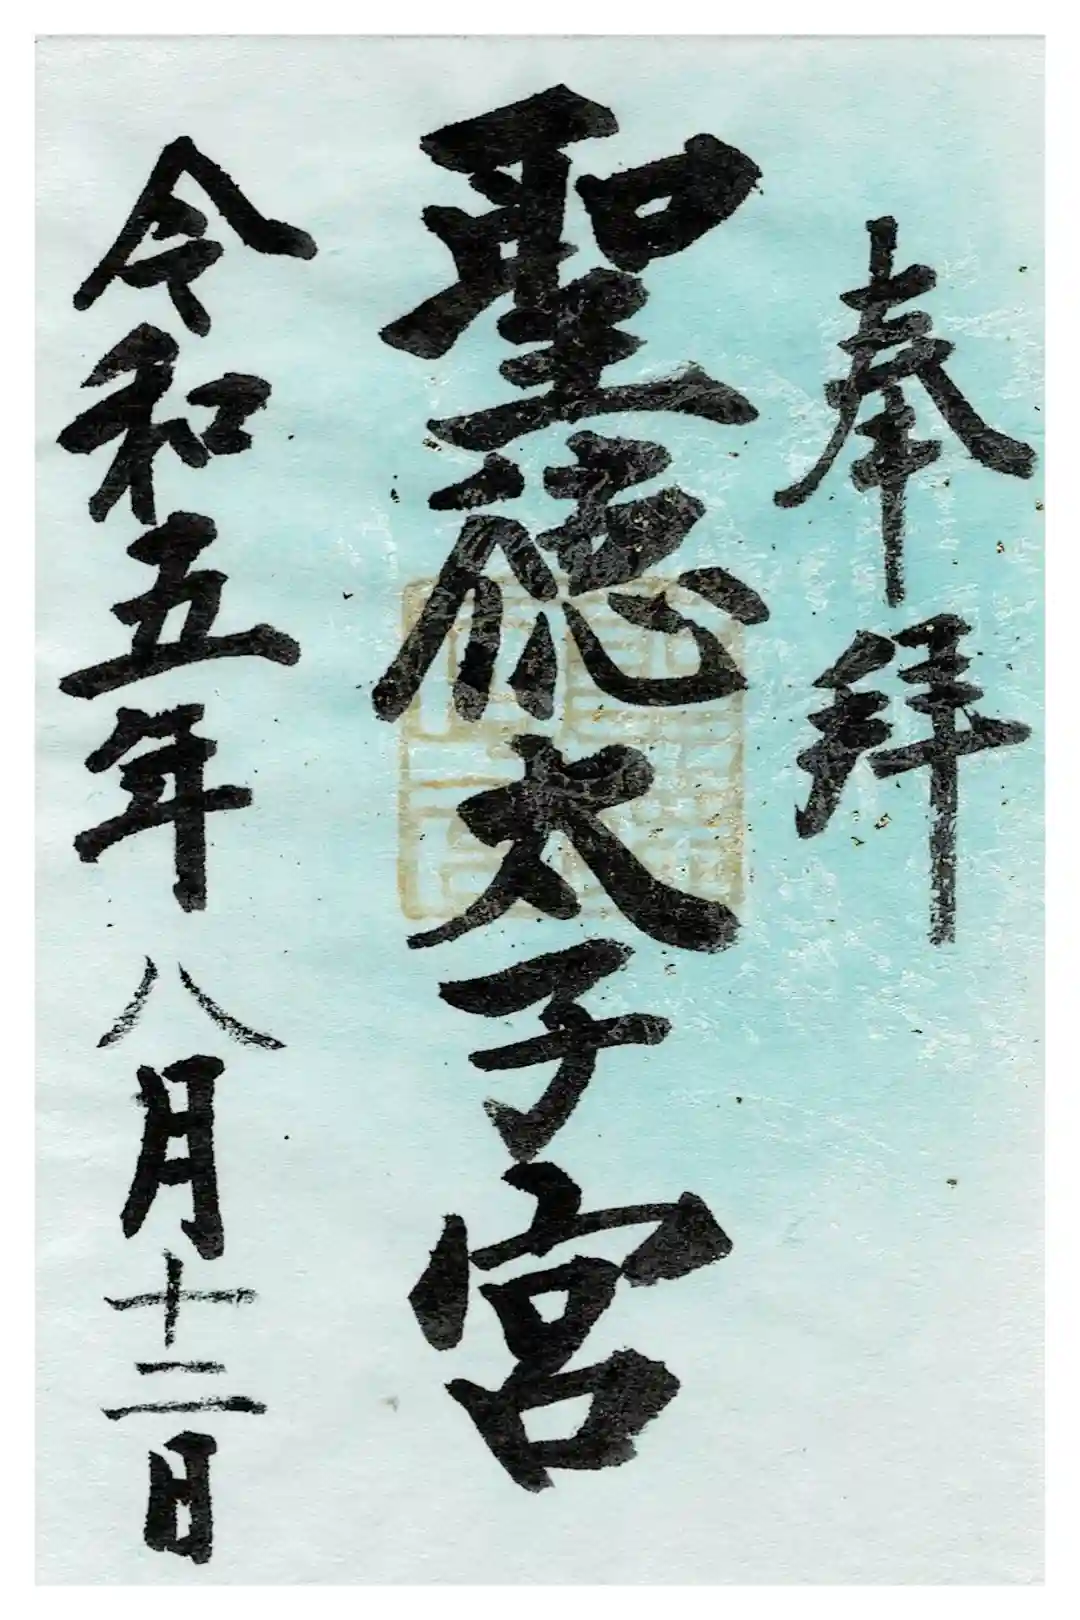 奉拝
聖徳太子宮
令和五年八月十二日